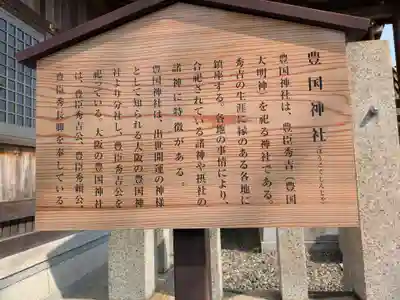 豊国神社(ほうこくじんじゃ)
豊国神社は、豊臣秀吉(豊国
大明神)を祀る神社である。
秀吉の生涯に縁のある各地に
鎮座する。各地の事情により、
合祀されている諸神や摂社の
諸神に特徴がある。
豊国神社は、出世開運の神様
として知られる大阪の豊国神
社より分社し、豊臣秀吉公を
祀っている。大阪の豊国神社
は、豊臣秀吉公、豊臣秀頼公、
豊臣秀長卿を奉している。